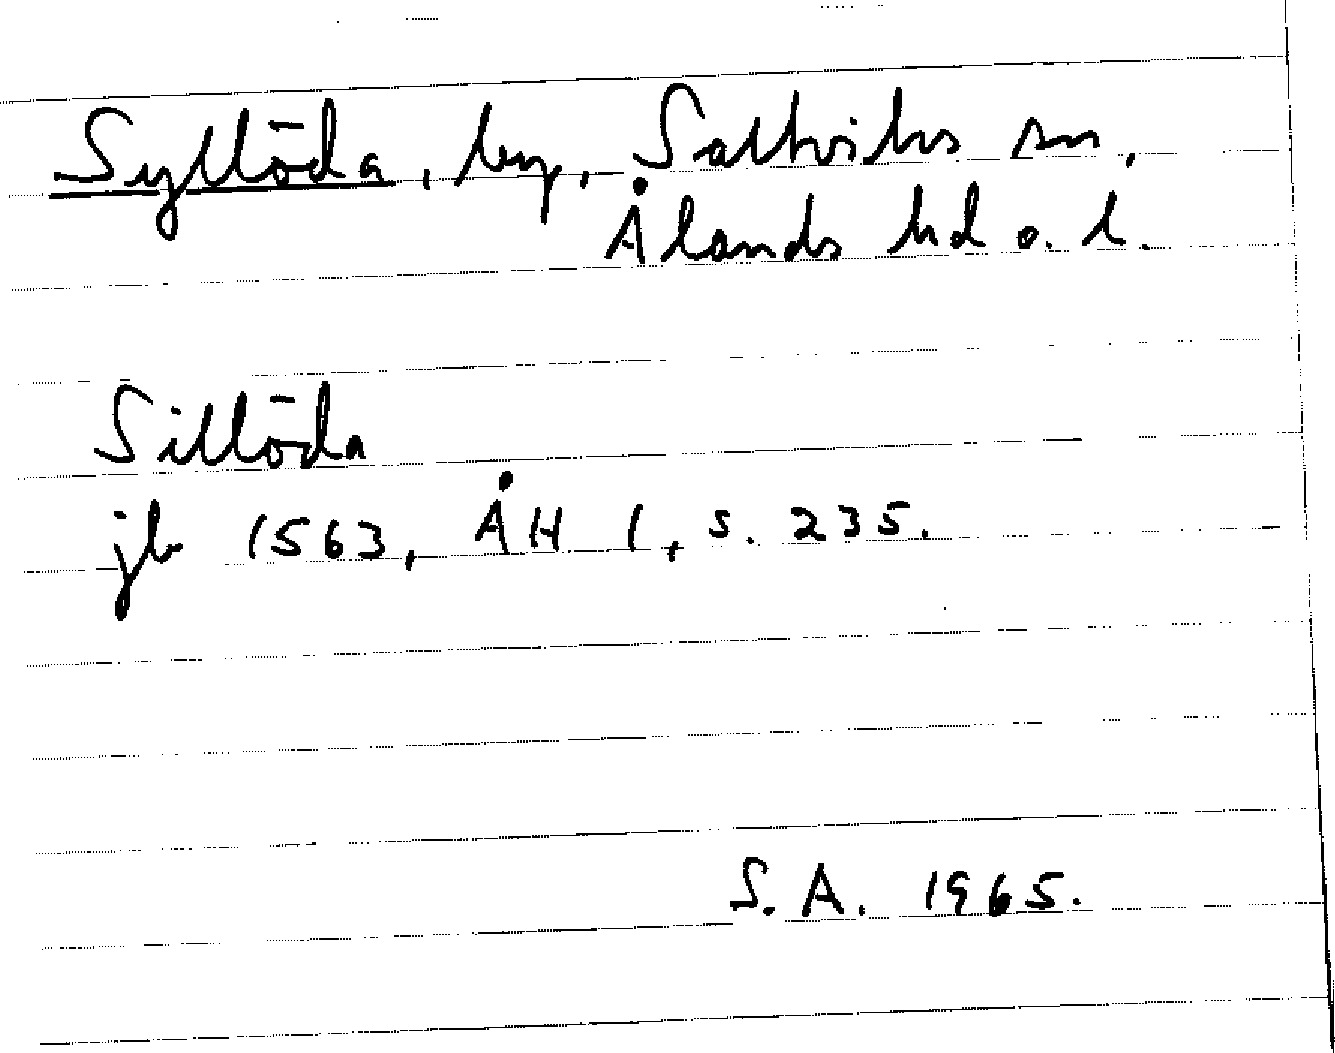 Syllöda, by, Saltviks sn,
Ålands hd o. l.
Sillöda
jb 1563, ÅH 1, s. 235.
S. A. 1965.